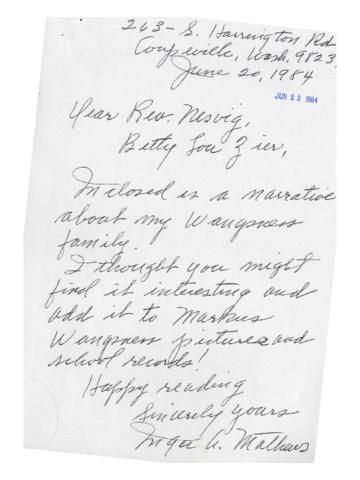 263- S. Harrington Rd
Coupeville, Wash. 9823
June 20, 1984
JUN 22 1984
Dear Rev. Nesvig,
Betty Lou Zier,
Inclosed is a narrative
about my Wangsness
family.
I thought you might
find it interesting and
add it to Markus
Wangsness pictures and
school records!
Happy reading
Sincerely yours
Inga A. Mathews